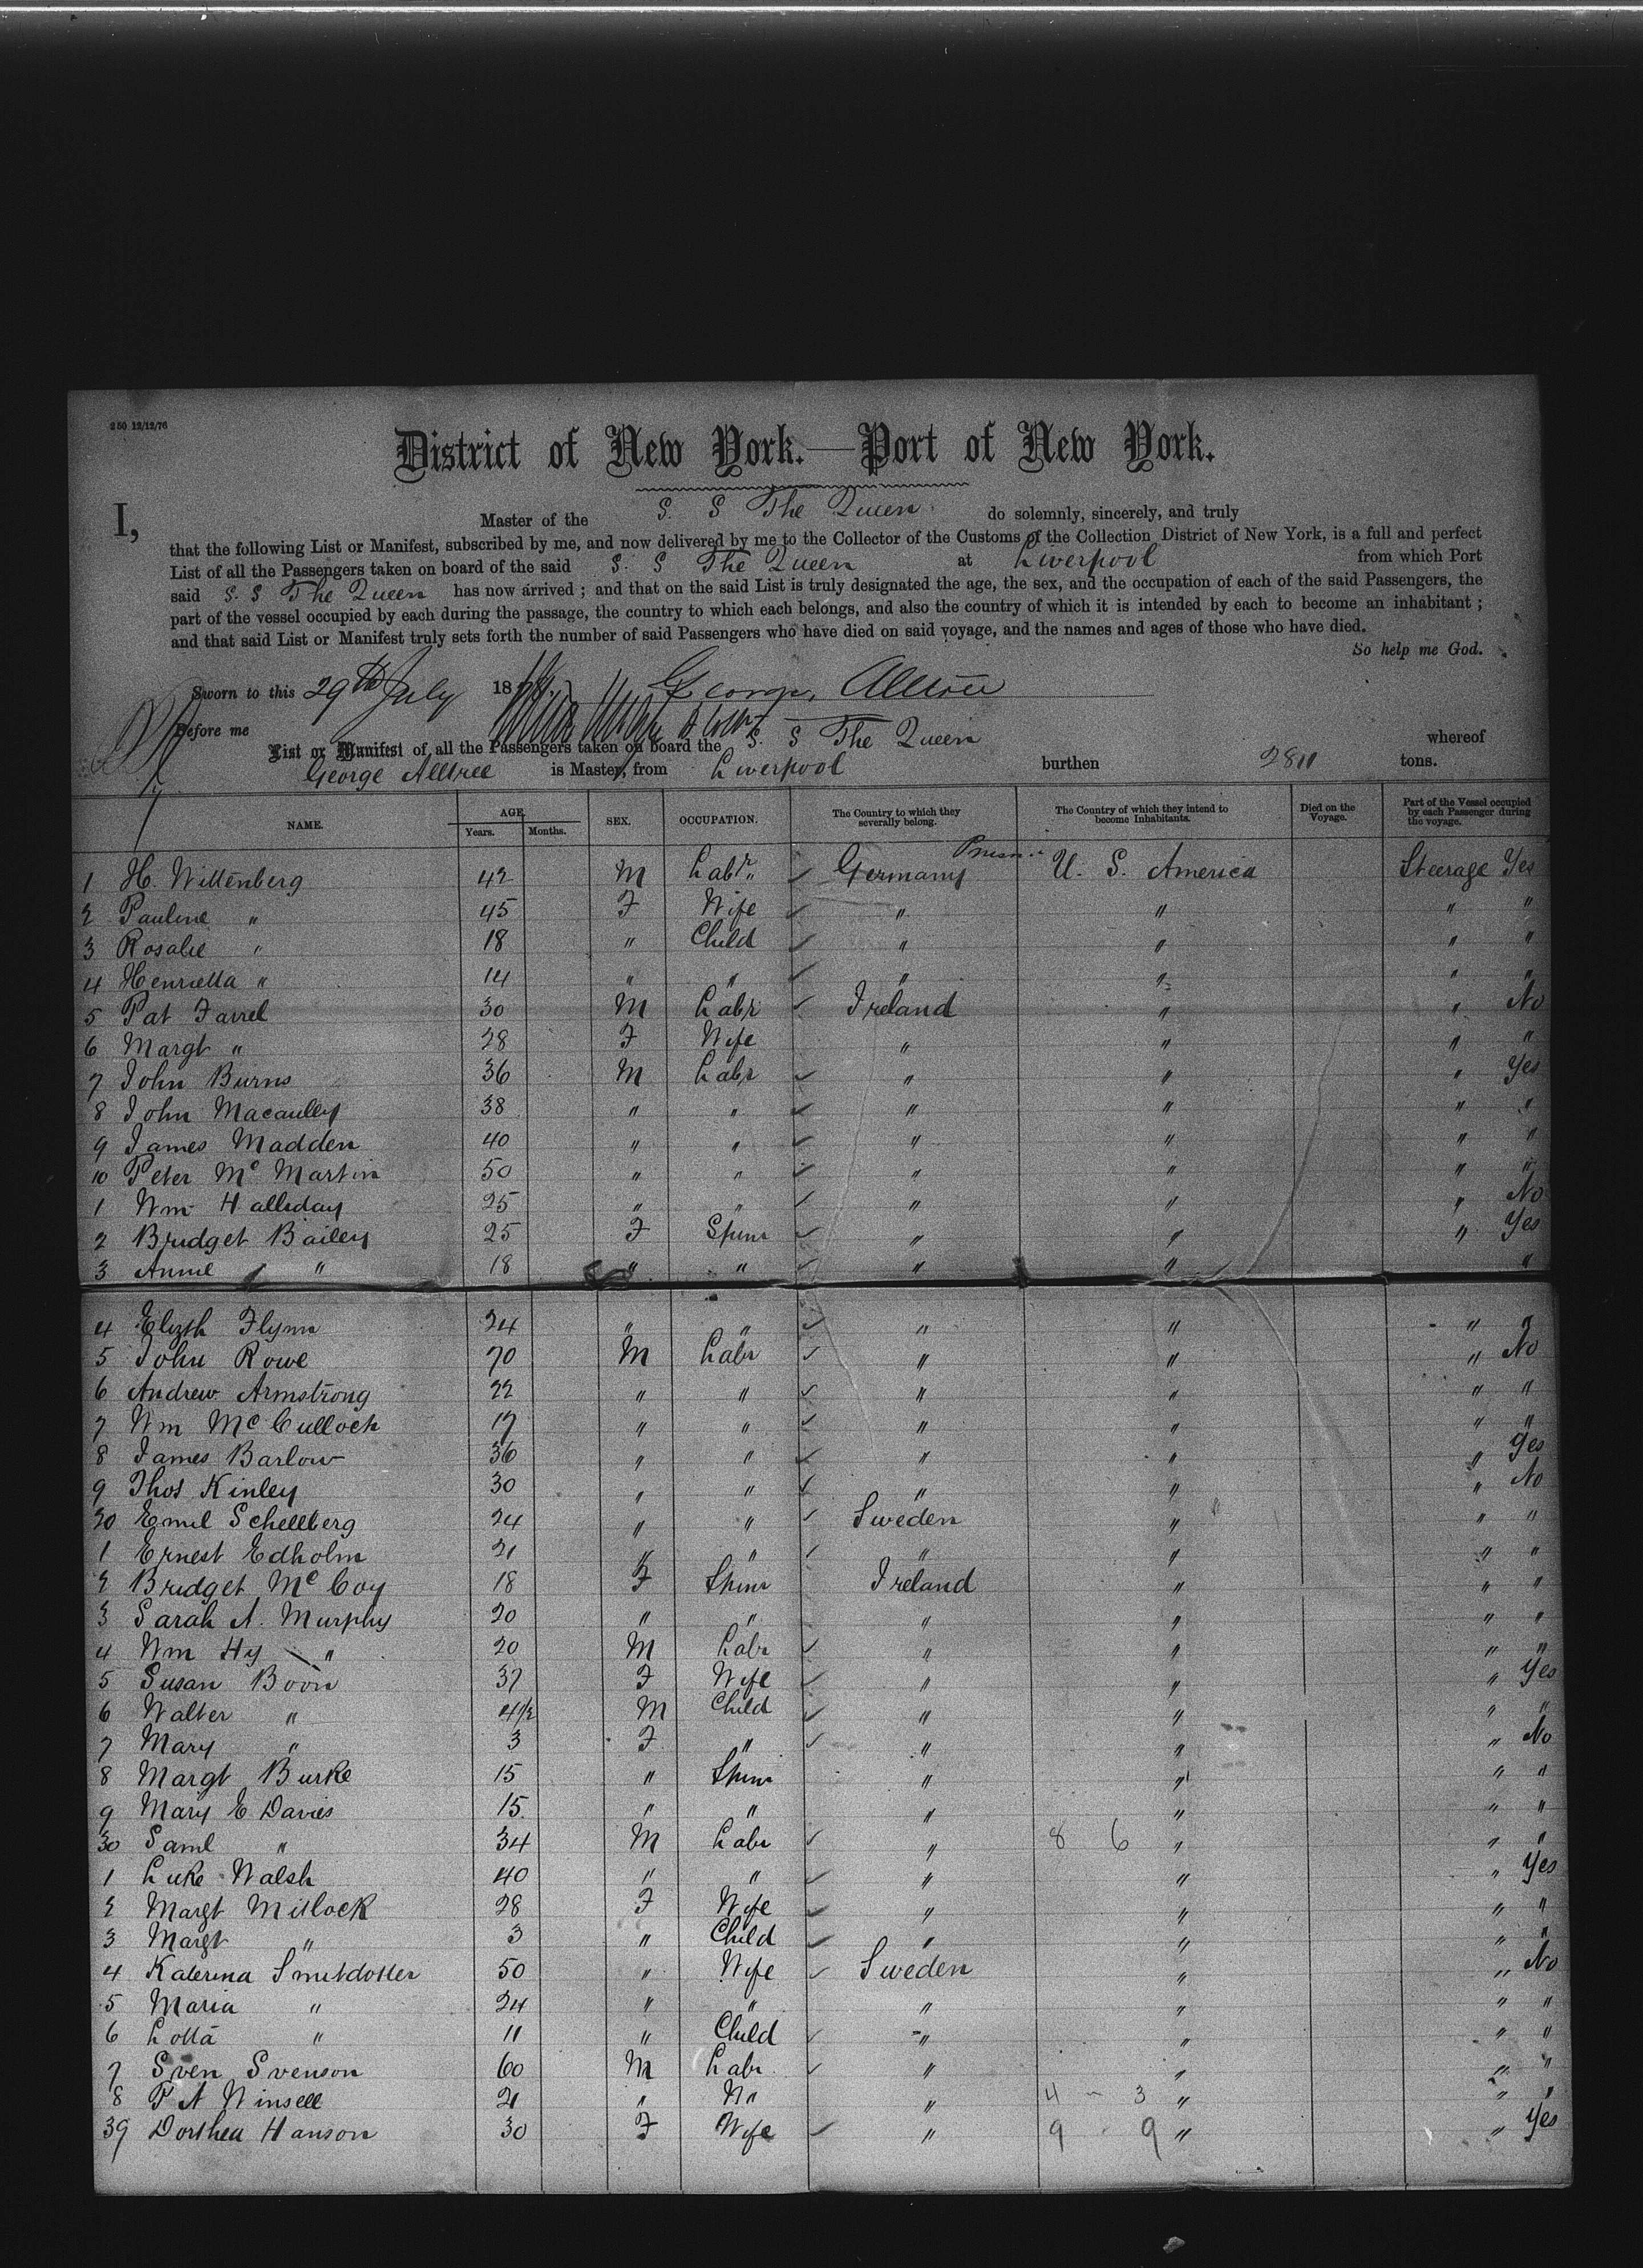 250 12/12/76
District of New York.—Port of New York.
I, Master of the S. S The Queen do solemnly, sincerely, and truly
that the following List or Manifest, subscribed by me, and now delivered by me to the Collector of the Customs of the Collection District of New York, is a full and perfect
List of all the Passengers taken on board of the said S. S The Queen at Liverpool from which Port
said S. S The Queen has now arrived ; and that on the said List is truly designated the age, the sex, and the occupation of each of the said Passengers, the
part of the vessel occupied by each during the passage, the country to which each belongs, and also the country of which it is intended by each to become an inhabitant ;
and that said List or Manifest truly sets forth the number of said Passengers who have died on said voyage, and the names and ages of those who have died.
So help me God.
Sworn to this 29th July 18 George
Before me
List or Manifest of, all the Passengers taken on board the S. S The Queen whereof
George Alltree is Master, from Liverpool burthen 2811 tons.
NAME. AGE Years. Months. SEX. OCCUPATION. The Country to which they severally belong. The Country of which they intend to become Inhabitants. Died on the Voyage. Part of the Vessel occupied by each Passenger during the voyage.
1 H. Wittenberg 42 M Labr " Germany U. S. America Steerage Yes
2 Pauline " 45 F Wife " " " "
3 Rosalie " 18 " Child " " " "
4 Henrietta " 14 " " " " " "
5 Pat Farrel 30 M Labr Ireland " " No
6 Margt " 28 F Wife " " " "
7 John Burns 36 M Labr " " " Yes
8 John Macaulley 38 " " " " " "
9 James Madden 40 " " " " " "
10 Peter Mc Martin 50 " " " " " "
1 Wm Halliday 25 " " " " " No
2 Bridget Bailey 25 F Spinr " " " Yes
3 Annie " 18 " " " " "
4 Elizth Flynn 24 " " " " " "
5 John Rowe 70 M Labr " " " No
6 Andrew Armstrong 22 " " " " " "
7 Wm McCullock 17 " " " " " "
8 James Barlow 36 " " " " " Yes
9 Thos Kinley 30 " " " " " No
20 Emil Schellberg 24 " " Sweden " " "
1 Ernest Edholm 21 " " " " " "
2 Bridget McCoy 18 F Spinr Ireland " " "
3 Sarah A. Murphy 20 " " " " " "
4 Wm Hy " 20 M Labr " " " "
5 Susan Boon 37 F Wife " " " Yes
6 Walter " 4 1/2 M Child " " " "
7 Mary " 3 F " " " " No
8 Margt Burke 15 " Spinr " " " "
9 Mary E Davies 15 " " " " " "
30 Saml " 34 M Labr " 8 6 " " "
1 Luke Walsh 40 " " " " " Yes
2 Margt Mitlock 28 F Wife " " " "
3 Margt " 3 " Child " " " "
4 Katerina Smitdotter 50 " Wife Sweden " " No
5 Maria " 24 " " " " " "
6 Lotta " 11 " Child " " " "
7 Sven Svenson 60 M Labr " " " "
8 P A Winsell 21 " " 4 - 3 " " "
39 Dorthea Hanson 30 F Wife " 9 - 9 " " Yes